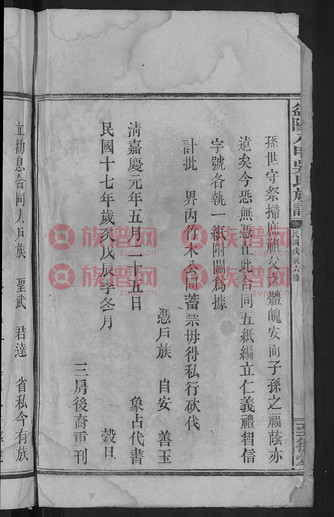 孫世守祭掃庶祖父之體魄安而子孫之福蔭亦
遠矣今恐無憑立此合同五紙編立仁義禮智信
字號各執一紙開關爲據
計批　界内竹木公同蓄禁毋得私行砍伐
憑戶族　自安　善玉
象占代書
淸嘉慶元年五月二十五日　穀旦
民國十七年歲次戊辰季冬月
三房後裔重刊
立勸息合同人戶族　聖武　君達　省私今有族
益陽八甲吳氏族譜
民國戊辰六修
族譜网